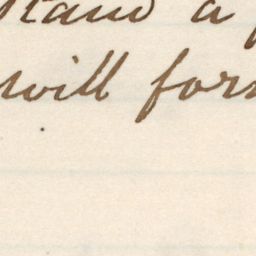 stand a
will for